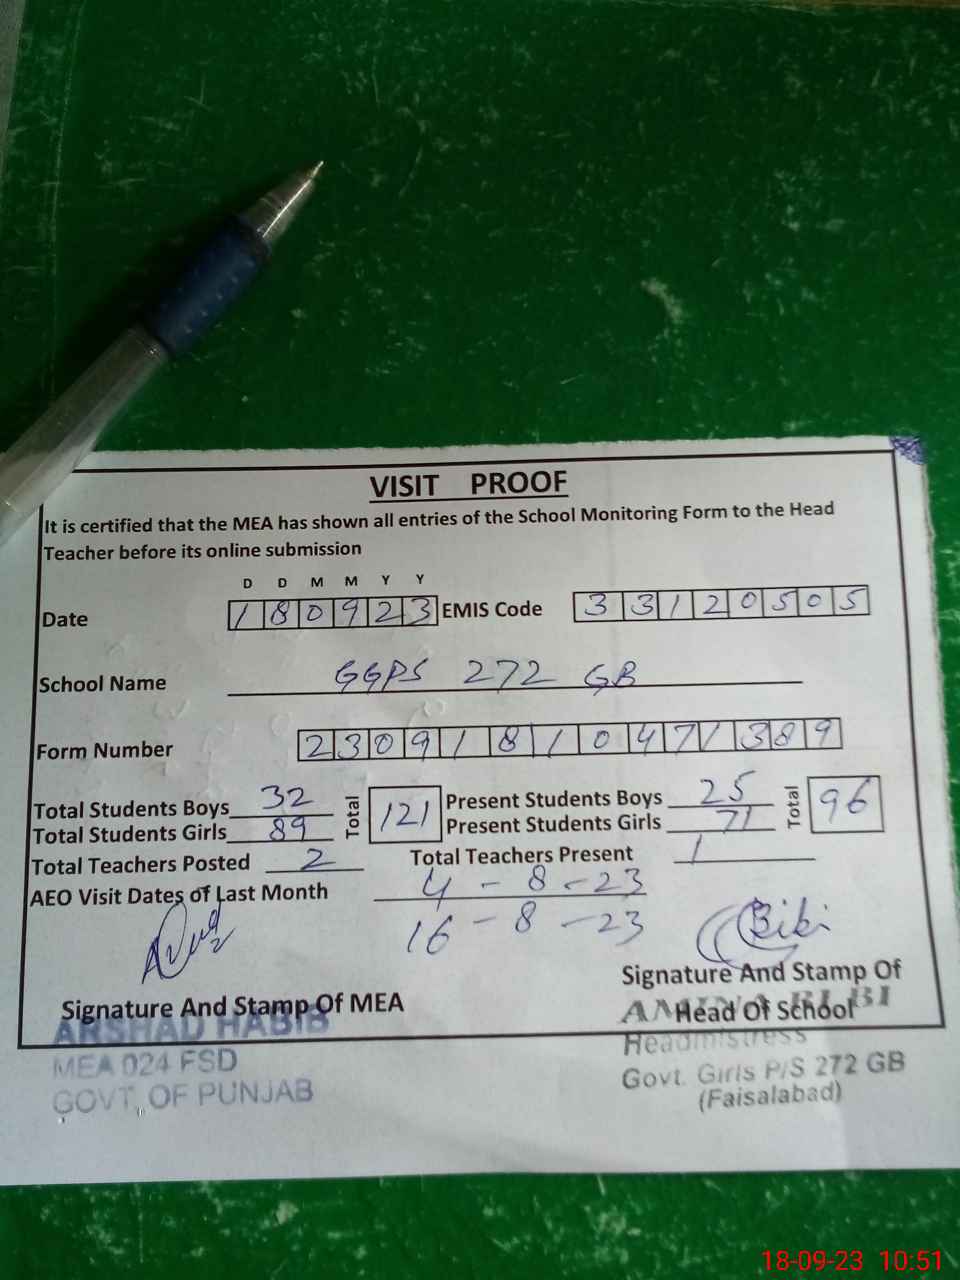 VISIT PROOF
It is certified that the MEA has shown all entries of the School Monitoring Form to the Head
Teacher before its online submission
D D M M Y Y
Date 180923 EMIS Code 33120505
School Name GGPS 272 GB
Form Number 23091810471389
Total Students Boys 32 Total 121 Present Students Boys 25 Total 96
Total Students Girls 89 Present Students Girls 71
Total Teachers Posted 2 Total Teachers Present 1
AEO Visit Dates of Last Month 4-8-23
16-8-23
Bibi
Signature And Stamp Of MEA
Signature And Stamp Of
Head Of School
ARSHAD HABIB
MEA 024 FSD
GOVT. OF PUNJAB
AMINA BI BI
Headmistress
Govt. Girls P/S 272 GB
(Faisalabad)
18-09-23 10:51